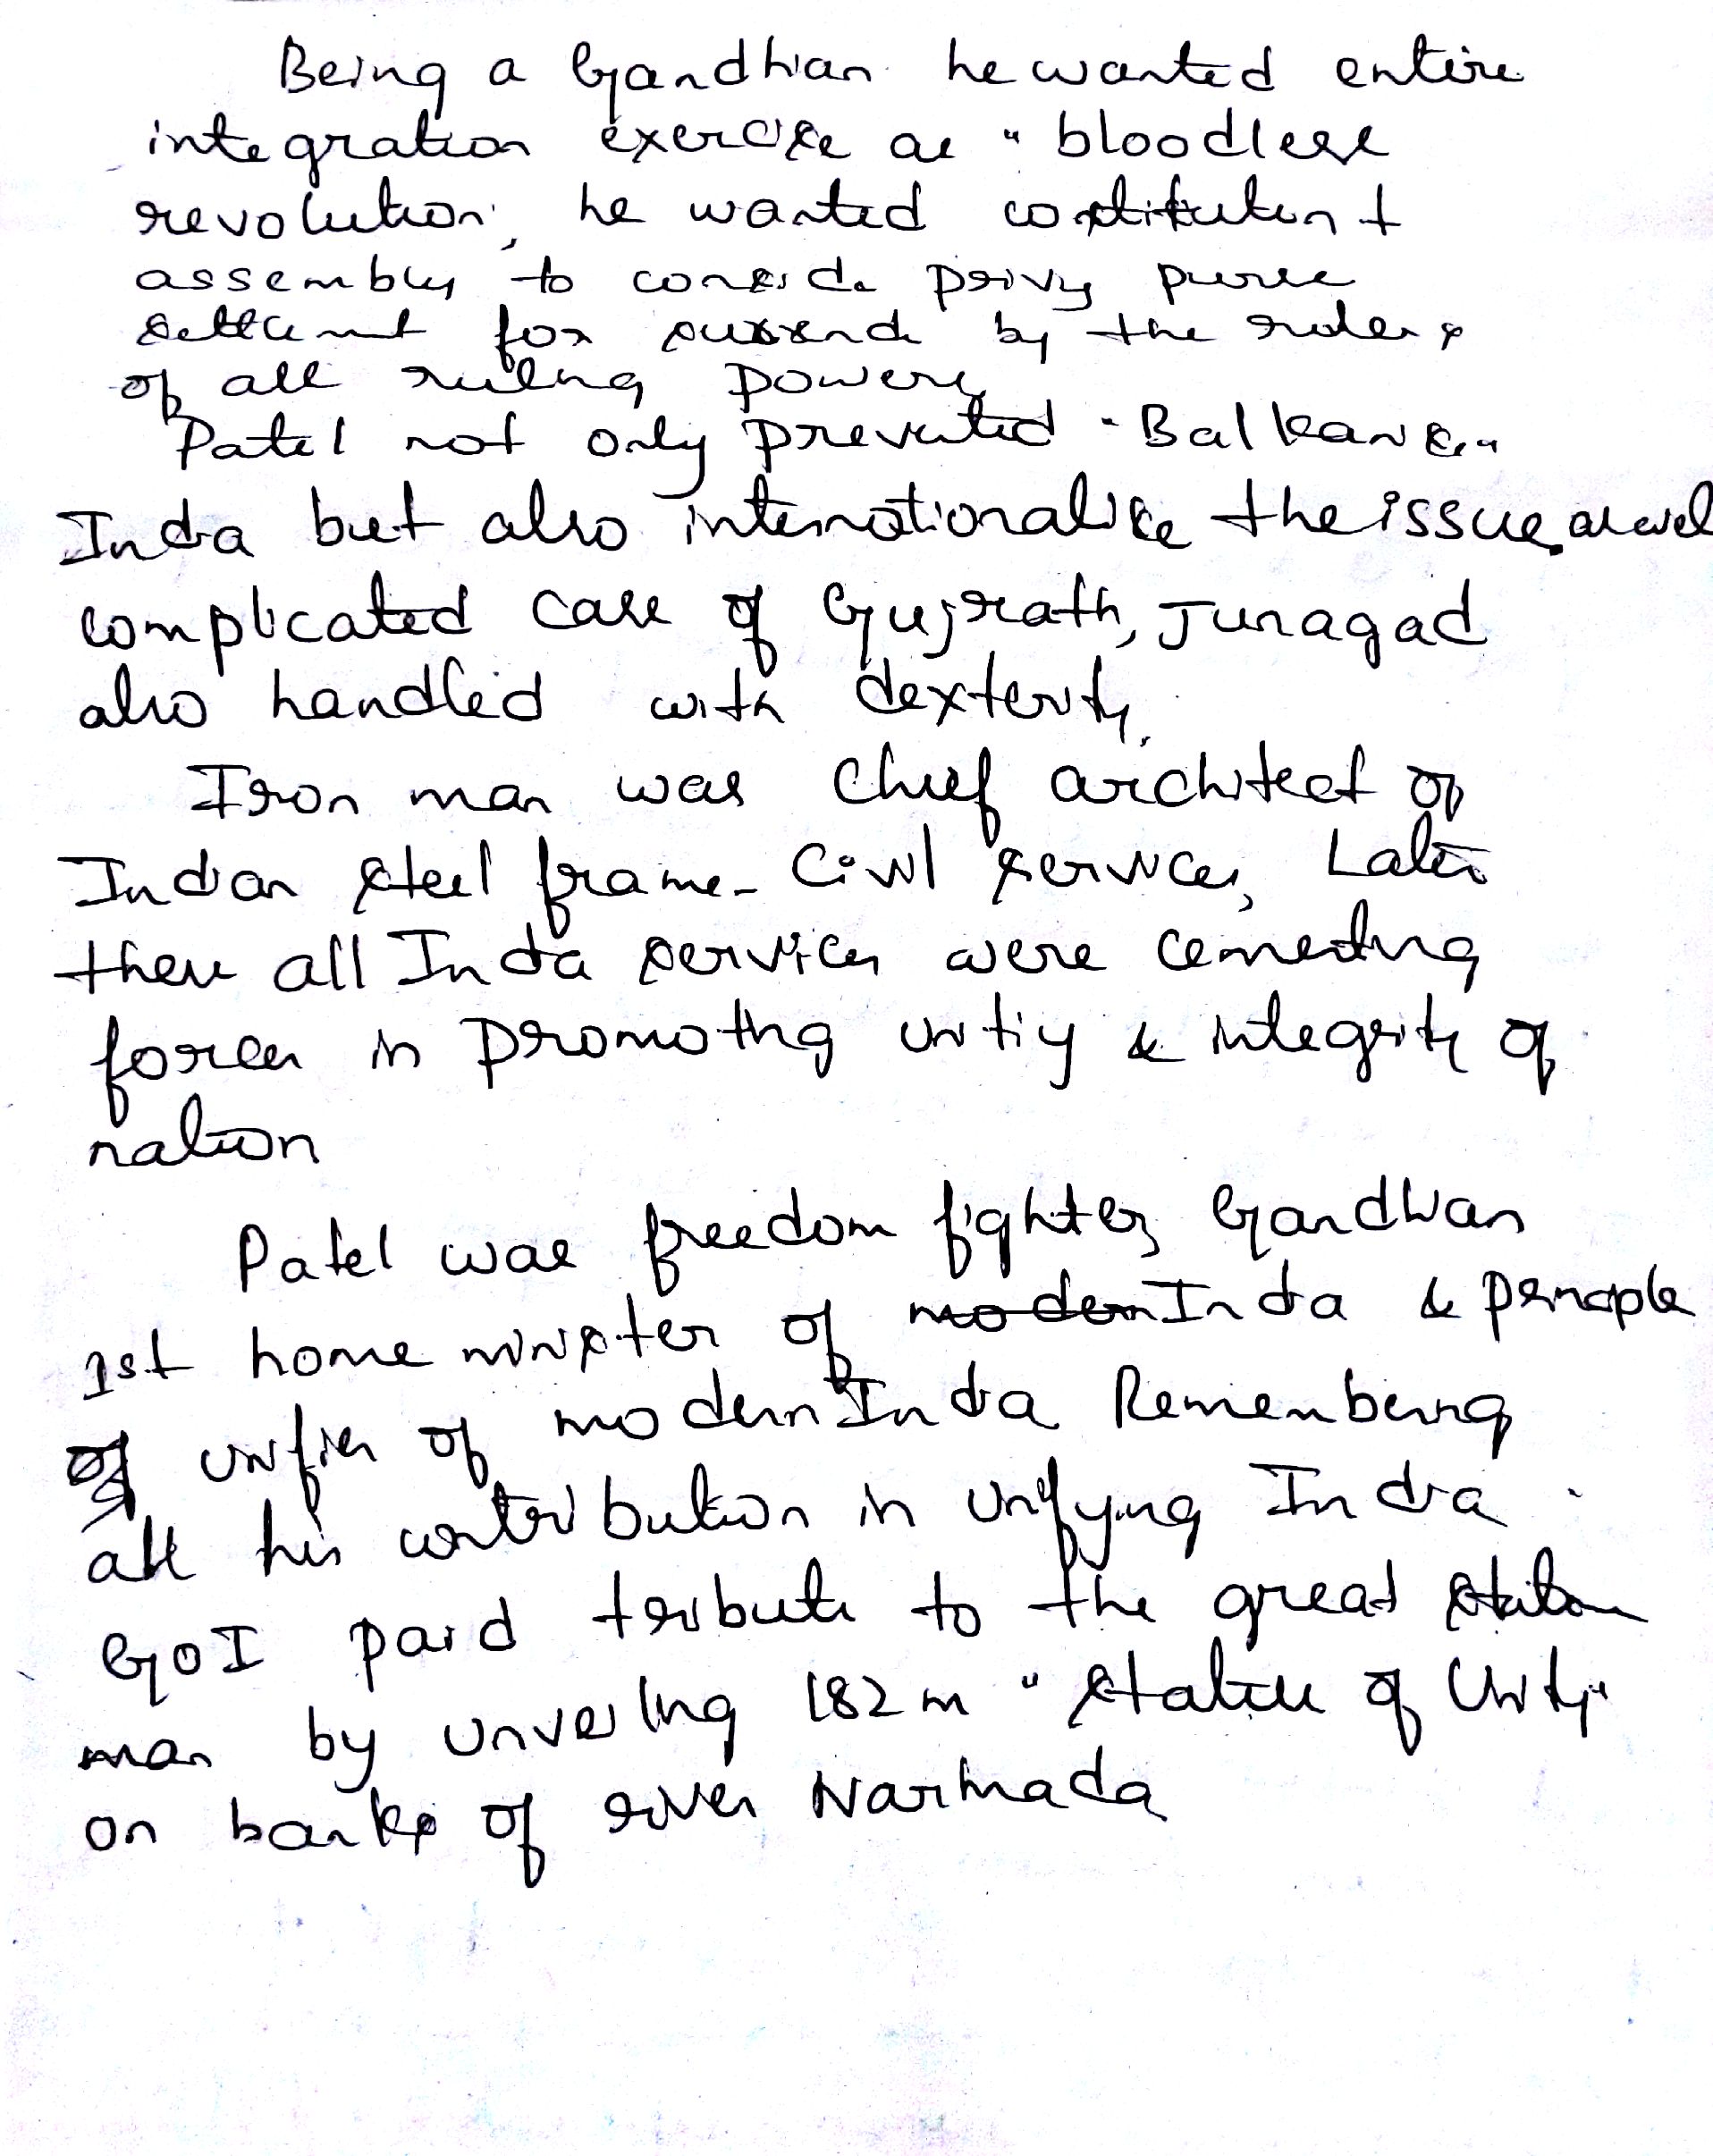 Being a Gandhian he wanted entire
integration exercise as "bloodless
revolution, he wanted constituent
assembly to conside privy purse
for by the rulers
of all ruling powers
Patel not only prevented "Balkans"
India but also internationalise the issue as well
complicated case of Gujrath, Junagad
also handled with dexterity.
Iron man was chief architect of
Indian steel frame - Civil services, Later
these all India services were cementing
forces in promoting untiy & integrity of
nation
Patel was freedom fighter, Gandhian
1st home minister of modern India & principle
of unifier of modern India Remembering
all his contribution in unifying India
GOI paid tribute to the great
man by unveiling 182 m "statue of Unity"
on banks of river Narmada